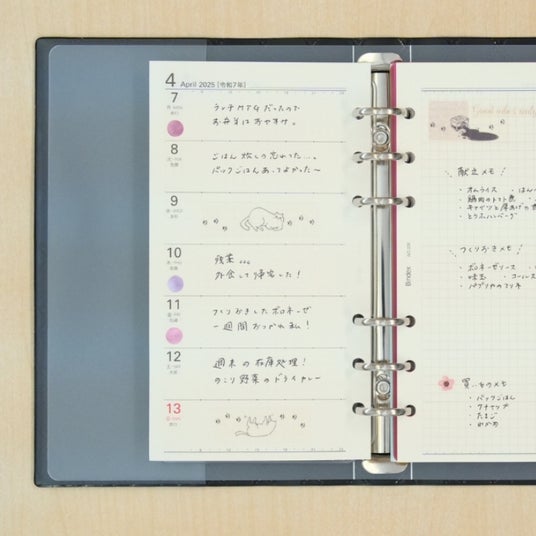 4 April 2025 [令和7年]
7
ランチMTGだったので
お弁当はおやすみ。
8
ごはん炊くの忘れてた…。
パックごはんあってよかった〜
9
10
残業。。。
外食して帰宅した!
11
つくりおきしたボロネーゼ
一週間おつかれ私!
12
週末の在庫処理!
のこり野菜のドライカレー
13
Bindex
献立メモ
・オムライス
・鶏肉のトマト煮
・キャベツと厚あげの
・とうふハンバーグ
つくりおきメモ
・ボロネーゼソース
・味玉 ・コールス
・パプリカのマリネ
買いものメモ
・パックごはん
・ケチャップ
・たまご
・わかめ